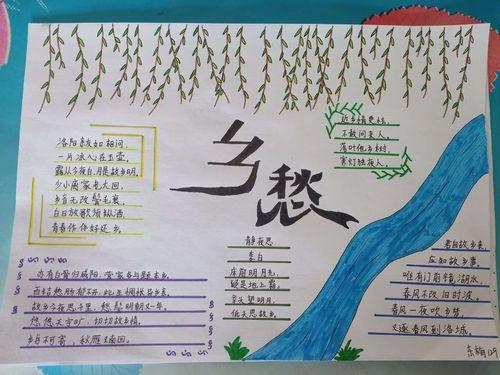 乡愁
洛阳亲友如相问,
一片冰心在玉壶。
露从今夜白,月是故乡明。
少小离家老大回,
乡音无改鬓毛衰。
白日放歌须纵酒,
青春作伴好还乡。
近乡情更怯,
不敢问来人。
落叶他乡树,
寒灯独夜人。
静夜思
李白
床前明月光,
疑是地上霜。
举头望明月,
低头思故乡。
亦有白骨归咸阳,营家各与题本乡。
百结愁肠郁不开,此生惆怅异乡来。
故乡今夜思千里,愁鬓明朝又一年。
悠悠天宇旷,切切故乡情。
乡目不可寄,秋雁又南回。
君自故乡来,
应知故乡事。
唯有门前镜湖水,
春风不改旧时波。
春风一夜吹乡梦,
又逐春风到洛城。